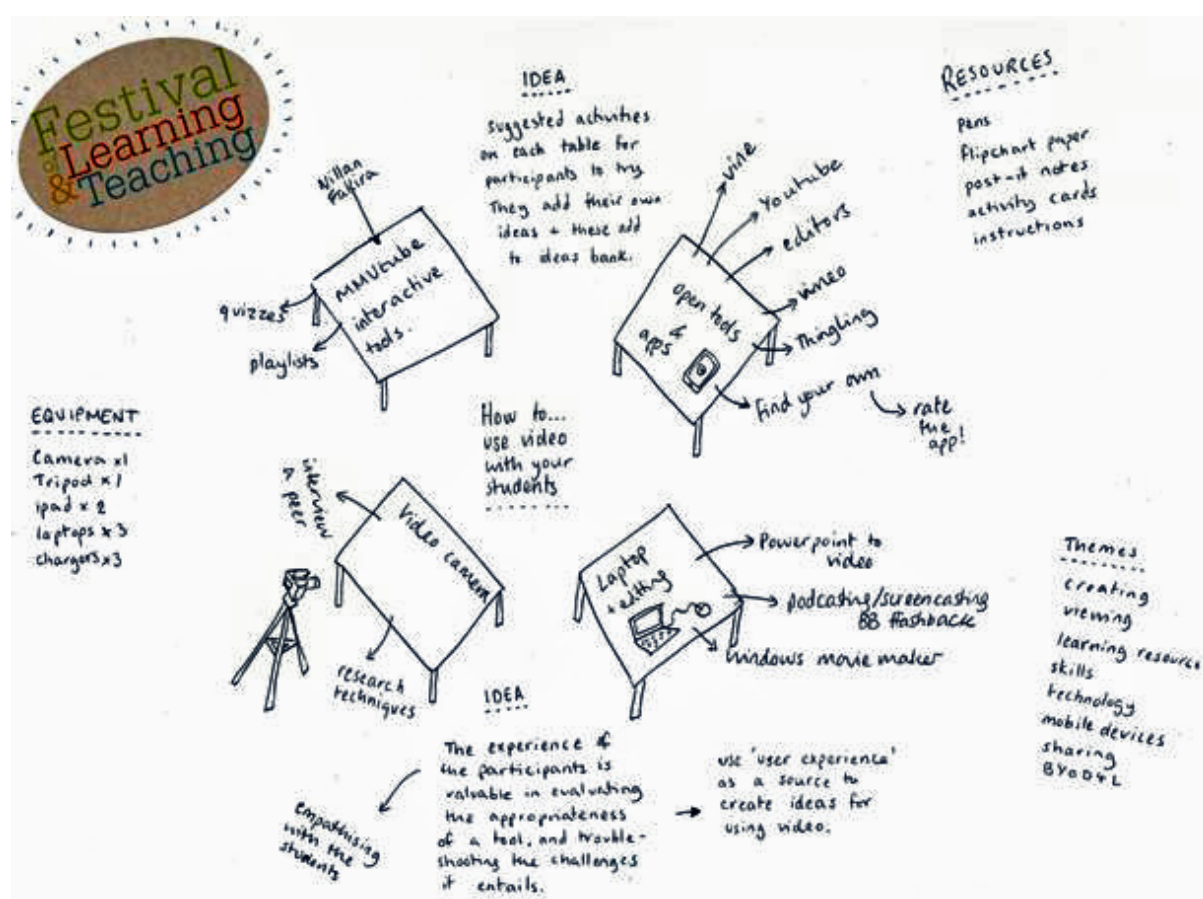 Festival
for Learning
& Teaching
IDEA
suggested activities
on each table for
participants to try
They add their own
ideas + these add
to ideas bank.
RESOURCES
pens
flipchart paper
post-it notes
activity cards
instructions
Fakira
MMUtube
interactive
tools.
quizzes
playlists
open tools
&
apps
vine
Youtube
editors
vimeo
Thingling
find your own
rate
the
app!
EQUIPMENT
Camera x1
Tripod x1
ipad x 2
laptops x 3
chargers x3
How to...
use video
with your
students
Video camera
interview
a
peer
research
techniques
Laptop
+ editing
Powerpoint to
video
podcasting/screencasting
BB flashback
windows movie maker
Themes
creating
viewing
learning resource
skills
technology
mobile devices
sharing
BYOD4L
IDEA
The experience of
the participants is
valuable in evaluating
the appropriateness
of a tool, and trouble-
shooting the challenges
it entails.
empathising
with the
students
use 'user experience'
as a source to
create ideas for
using video.